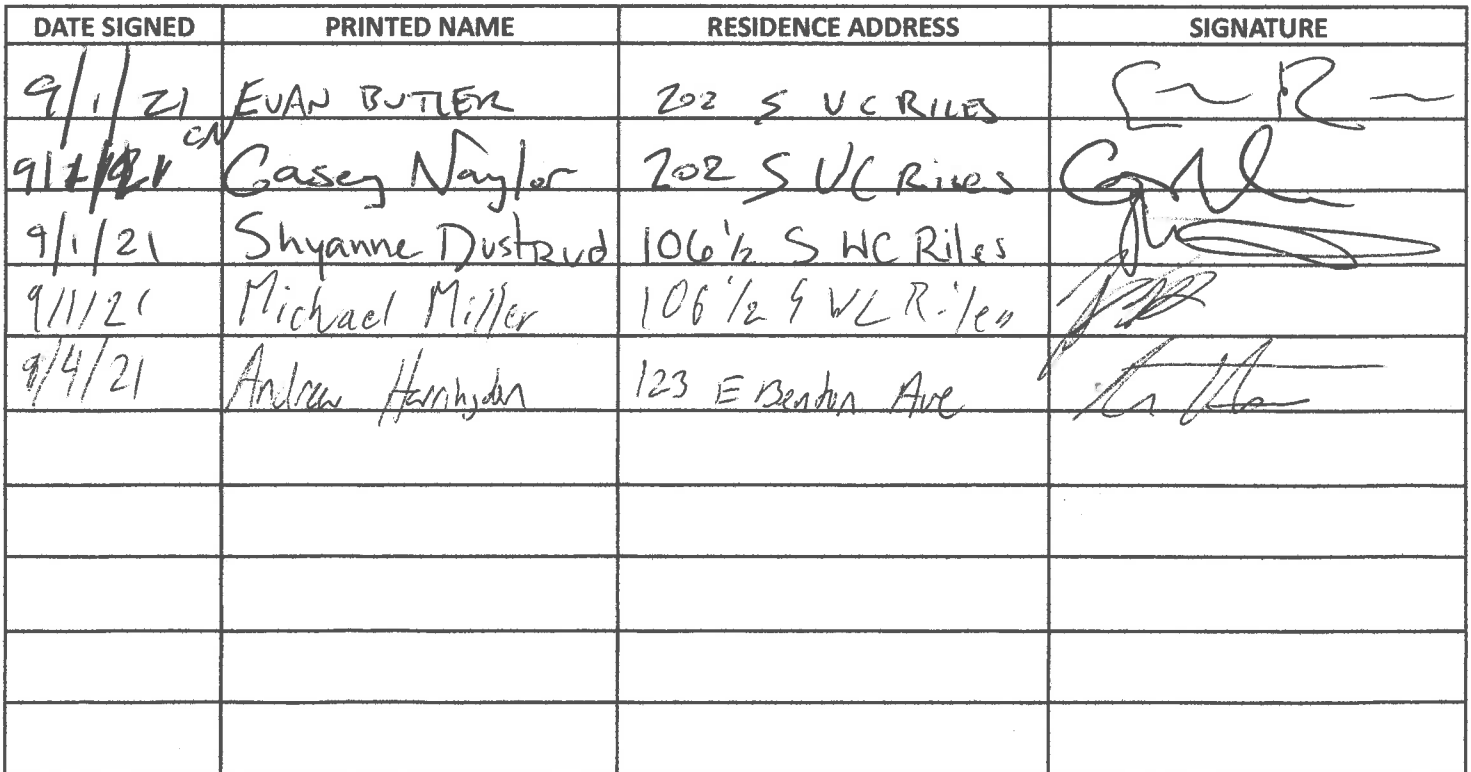 DATE SIGNED PRINTED NAME RESIDENCE ADDRESS SIGNATURE
9/1/21 EVAN BUTLER 202 S UC RILES
CN
9/1/21 Casey Naylor 202 S UC Riles
9/1/21 Shyanne Dustrud 106 1/2 S WC Riles
9/1/21 Michael Miller 106 1/2 S WC Riles
9/4/21 Andrew Harrington 123 E Benton Ave